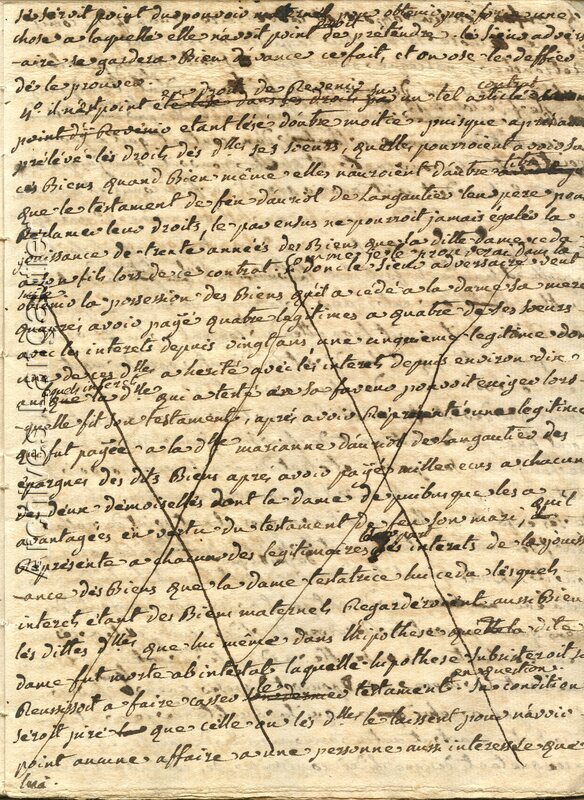 se seroit point du pouvoir obtenir par une
chose a laquelle elle navoit point de pretendre. le sieur advers
aire se gardera Bien davance ce fait, et on ose le deffier
de le prouver.
en droit de Revenir sur contrat
4º. il n'est point été lésé dans ses droits par un tel article
point dy Revenir etant lésé doutre moitié puisque apres avoir
prélévé les droits des dlles ses sœurs, quelles pourroient avoir sur
ces Biens quand Bien même elles nauroient dautre titre
que le testament de feu dauriol de Langautier leur pere pour
Reclamer leur droits, le par ensus ne pourroit jamais égaler la
jouissance de trente années des Biens que la ditte dame ceda
a son fils lors de ce contrat. comme je le prouverai dans la
suite donc le sieur adversaire veut
obtenir la possession des Biens quil a cédé a la dame sa mere
quaprés avoir payé quatre legitimes a quatre de ses sœurs
avec les interets depuis vingt ans une cinquieme legitime dont
une de ces dlles a herité avec les interets depuis environ dix
ans que la dlle qui a testé en sa faveur pouvoit exiger lors
quelle fit son testament, aprés avoir Représenté une legitime
qui fut payée a la dlle marianne dauriol de Langautier des
épargnes des dits Biens aprés avoir payé mille ecus a chacune
des deux demoiselles dont la dame de puibusque les a
avantagées en vertu du testament de feu son mari, quil
Représente a chacun des legitimaires les interets de la jouiss
ance des Biens que la dame testatrice lui ceda lesquels
interets etant des Biens maternels Regarderoient aussi Bien
les dittes dlles que lui même dans lhipothese que la dite
dame fut morte ab intestato laquelle hipothese subsisteroit se
en question
Reussissoit a faire casser le testament. Sa condition
seroit pire que celle ou les dlles le laissent pour navoir
point aucune affaire a une personne aussi interessée que
lui.
Archives Lurçatières